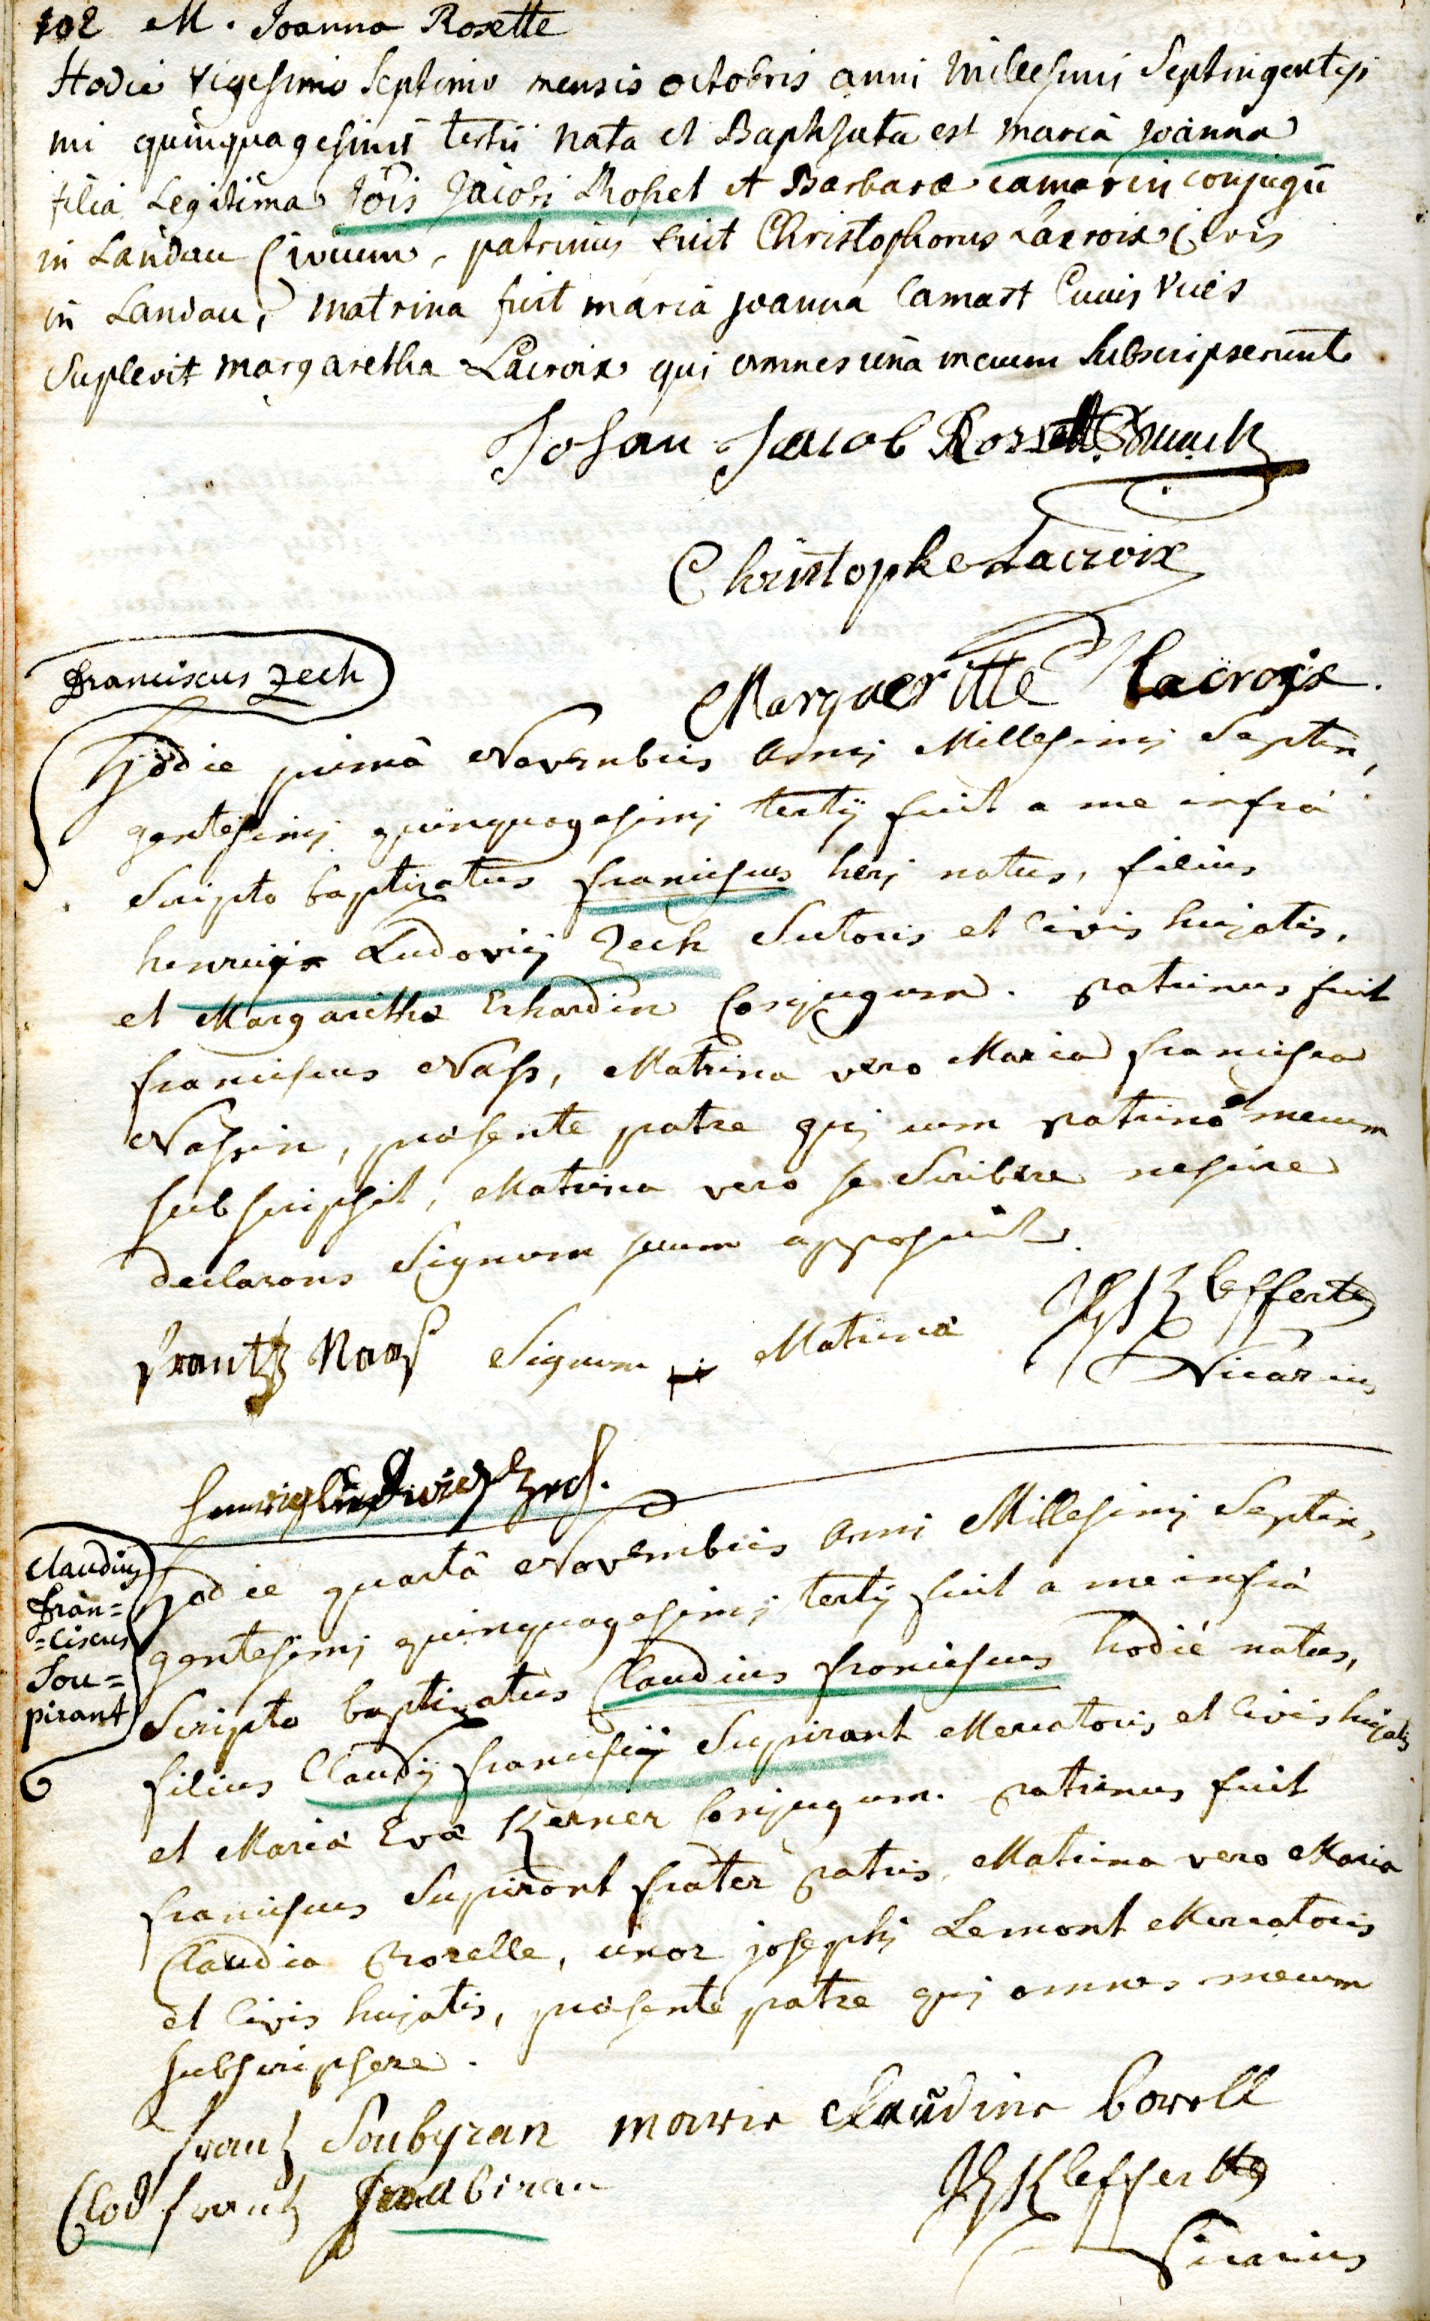 102 M. Joanna Rosette
Hodie vigesimo Septimo mensis octobris anni millesimi Septingentesi
mi quinquagesimi tertii nata et Baptisata est maria joanna
filia Legitima Jois Jacobi Rhoset et Barbarae camarin conjugū
in Landau Civium, patrinus fuit Christophorus Lacroix Civis
in Landau, matrina fuit maria joanna Camast cuius vices
Suplevit margaretha Lacroix qui omnes unà mecum Subscripserunt
Johan Jacob Rosett
Christophe Lacroix
Margueritte Lacroix.
franciscus Zech
Hodie primâ Novembris anni Millesimj Septin,
gentesimj quinquagesimj tertij fuit a me infrà
Scripto baptizatus franciscus herj natus, filius
henricj Ludovicj Zech Sutoris et Civis hujatis,
et Margarithæ Erhardin Conjugum. patrinus fuit
franciscus Nass, Matrina vero Maria francisca
Nassin, præsente patre qui cum patrino mecum
subscripsit, Matrina vero se Scribere nescire
declarans Signum suum apposuit.
frantz Naas Signum + Matrinæ
Kleffert
Vicarius
henrich Zech.
Claudius
fran=
=ciscus
Sou=
pirant
Hodie quartâ Novembris anni Millesimj Septin,
gentesimj quinquagesimj tertij fuit a me infrà
Scripto baptizatus Claudius franciscus hodiè natus,
filius Claudij franciscij Supirant Mercatoris et Civis hujatis
et Mariæ Evæ Kerner Conjugum. patrinus fuit
franciscus Supirant frater patris, Matrina vero Maria
Claudia Prorelle, uxor josephj Lemont Mercatoris
et Civis hujatis, præsente patre qui omnes mecum
subscripsere.
frantz Soubyran marie Claudine borell
Clod frantz Soubiran
Kleffert
Vicarius